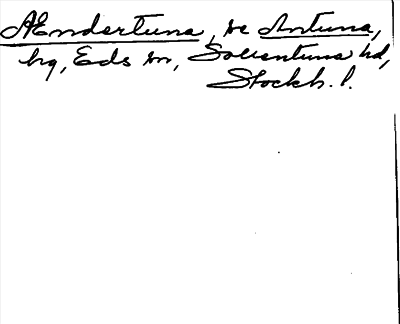 AEndertuna, se Antuna,
hg, Eds sn, Sollentuna hd,
Stockh. l.